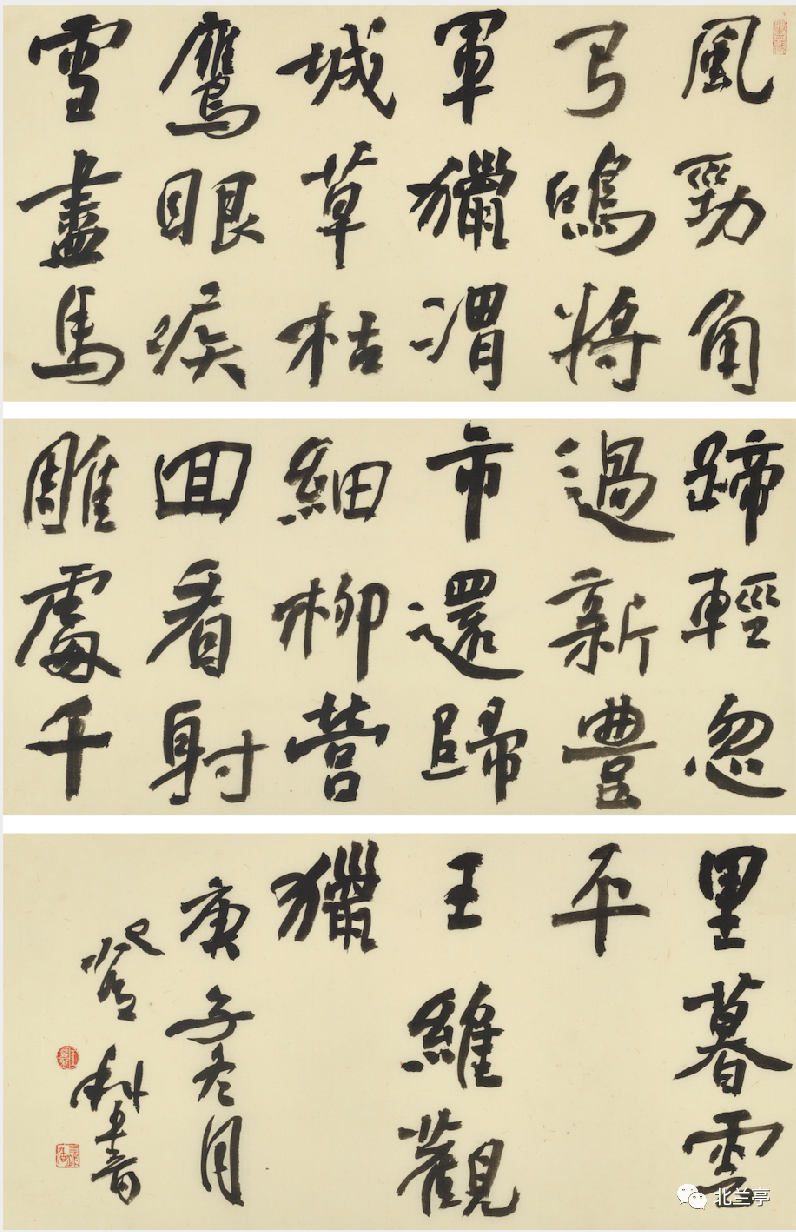 風勁角
弓鳴將
軍獵渭
城草枯
鷹眼疾
雪盡馬
蹄輕忽
過新豐
市還歸
細柳營
回看射
雕處千
里暮雲
平
王維觀
獵
庚子冬月
北兰亭